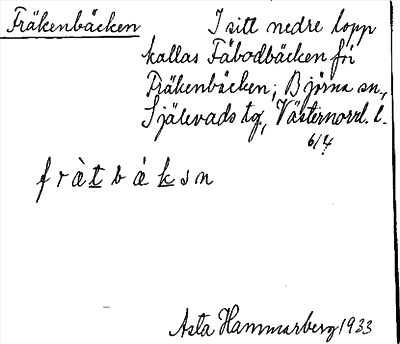 Fräkenbäcken
I sitt nedre lopp
kallas Fäbodbäcken för
Fräkenbäcken; Björna sn.,
Själevads tg, Västernorrl. l.
6/4
fràtbáksn
Asta Hammarberg 1933